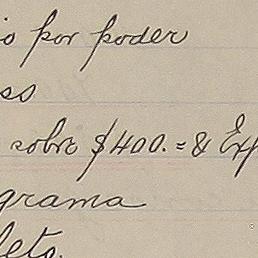 io por poder
so
sobre $400.= & Exp
grama
leto.